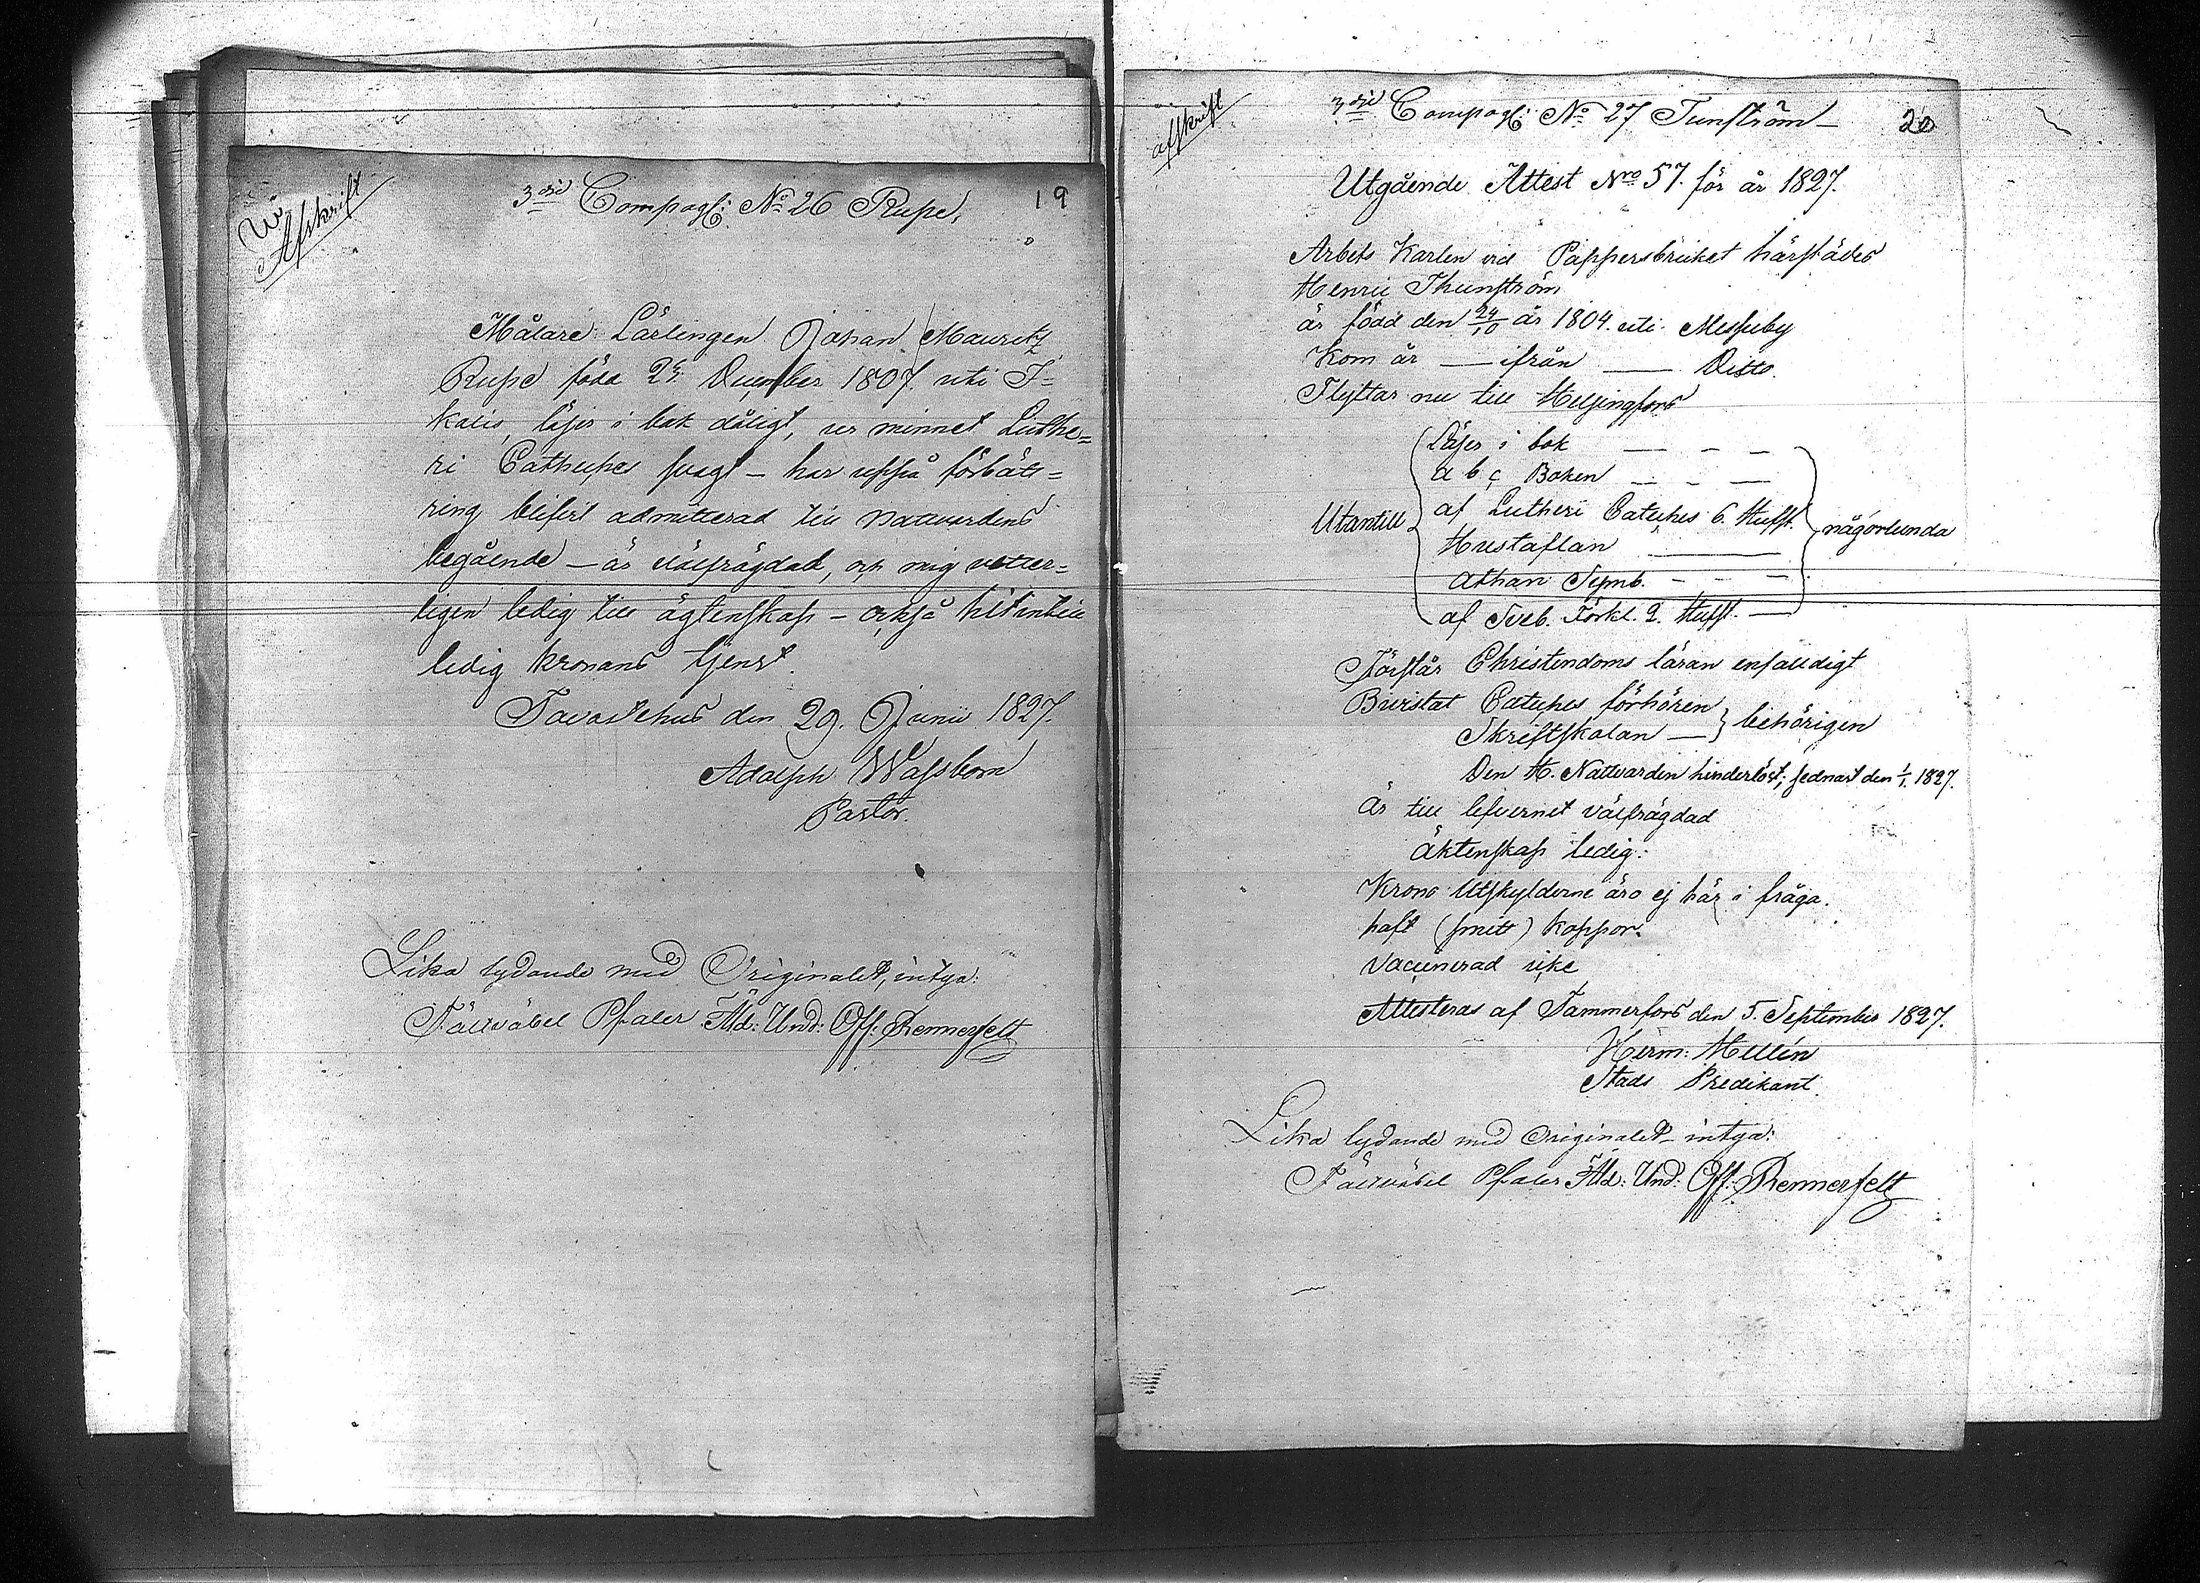 Afskrift
3die Compagl: No 26 Rupe,
19
Målare Lärlingen Johan Mauritz
Rupe född December 1807. uti I=
kalis, läser i bok dåligt, ur minnet Luthe=
ri Cathupes svagt – har uppå förbätt=
ring blifvit admitterad till Nattvardens
begående – är välfrägdad, och mig vetter=
ligen ledig till ägtenskap – också
ledig Kronans tjenst.
Tavastehus den 29. Junii 1827.
Adolph Wassbom
Pastor.
Lika lydande med Originalet, intyga:
Fältväbel Pfaler Äld: Und: Off: Rennerfelt
afskrift
3die Compagl: No 27 Tunström
20
Utgående Attest Nro 57. för år 1827.
Arbets Karlen vid Pappersbruket härstädes
Henric Thunström
är född den 24/10 år 1804. uti Messuby
Kom år — ifrån — Ditto.
Flyttar nu till Helsingfors
Läser i bok — — —
a b c Boken — — —
Utantill af Lutheri Cateches 6. Hufst. någorlunda
Hustaflan —
Athan Symb. - - -
af Sveb. Förkl. 2. Hufst. —
Förstår Christendoms läran enfalldigt
Bivistat Cateches förhören
Skriftskolan — behörigen
Den H. Nattvarden hinderlöst, sednast den 1/1. 1827.
Är till lefvernet välfrägdad
äktenskap ledig:
Krono Utskylderne äro ej här i fråga.
haft (smitt) koppor.
Vaccinerad icke
Attesteras af Tammerfors den 5. September 1827.
Herm: Mellin
Stads Predikant.
Lika lydande med Originalet intyga:
Fältväbel Pfaler Äld: Und: Off: Rennerfelt